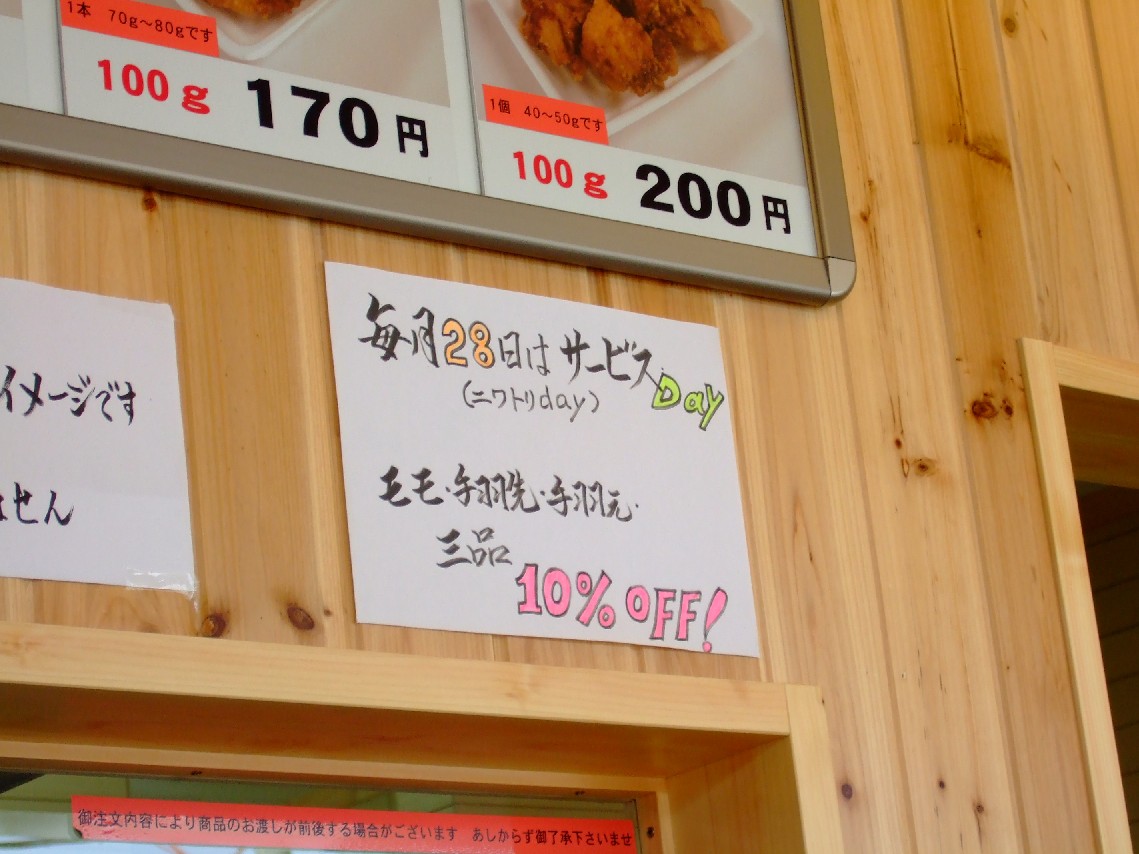 1本 70g～80gです
100g 170円
1個 40～50gです
100g 200円
毎月28日はサービスDay
(ニワトリday)
毛モ・手羽先・手羽元・
三品
10% OFF!
イメージです
せん
御注文内容により商品のお渡しが前後する場合がございます あしからず御了承下さいませ